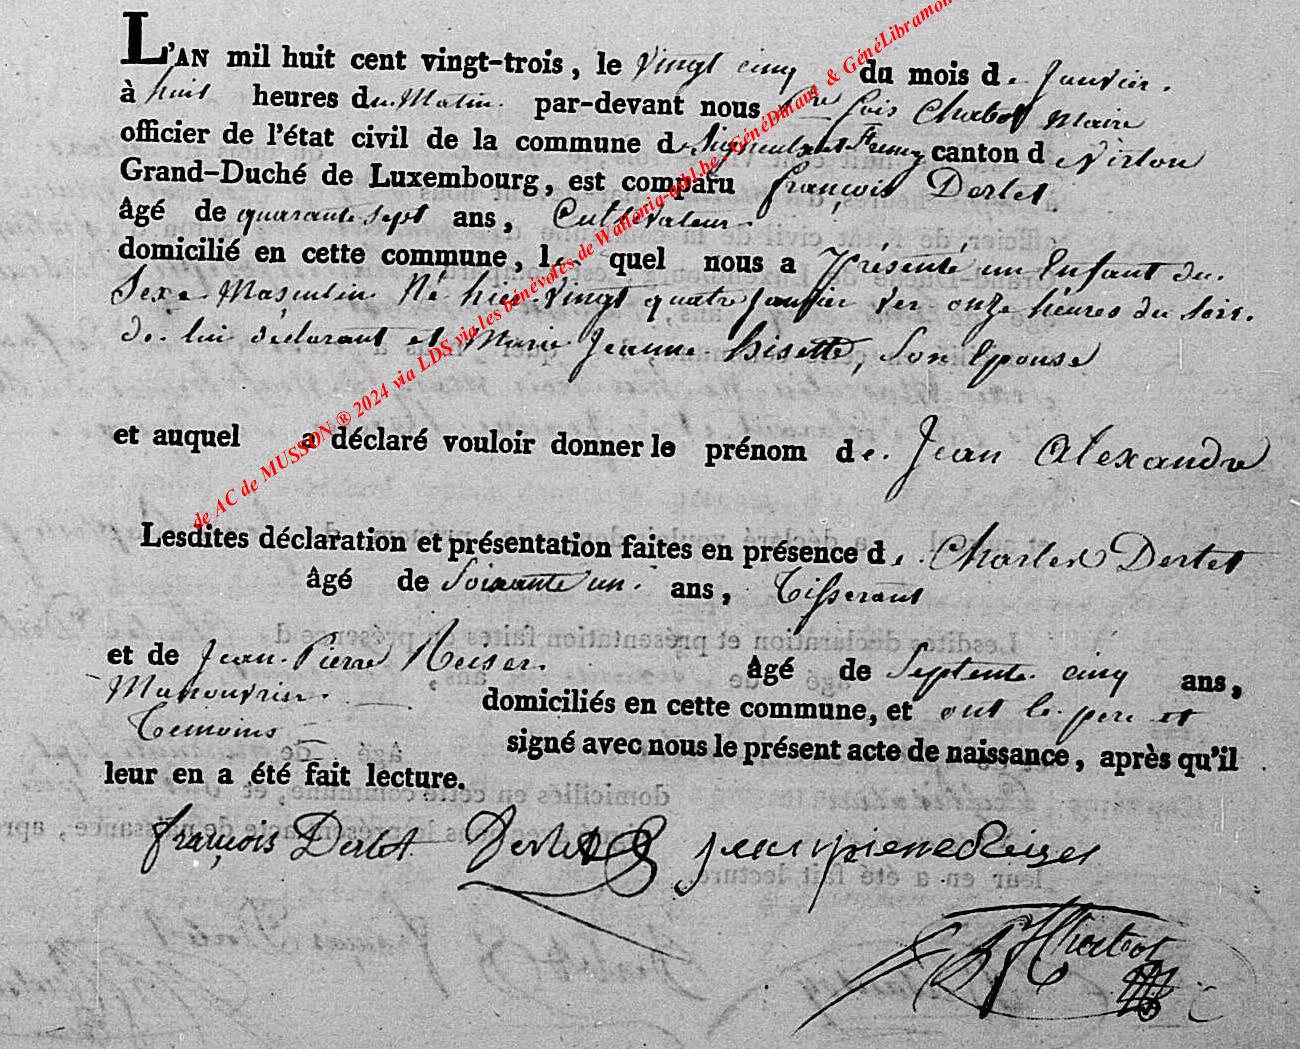 L'AN mil huit cent vingt-trois, le vingt cinq du mois de Janvier.
à huit heures du Matin. par-devant nous fois Chabot Maire
officier de l'état civil de la commune de canton de Virton
Grand-Duché de Luxembourg, est comparu françois Derlet
âgé de quarante sept ans, Cultivateur.
domicilié en cette commune, le quel nous a Présenté un Enfant du
Sexe Masculin Né hier vingt quatre janvier ver onze heures du soir.
de lui déclarant et Marie Jeanne Lisette, Son Epouse
et auquel a déclaré vouloir donner le prénom de Jean Alexandre
Lesdites déclaration et présentation faites en présence de Charles Derlet
âgé de Soixante un ans, Tisserant
et de Jean Pierre Reiser. âgé de Septente cinq ans,
Manouvrier. domiciliés en cette commune, et ont le pere et
Temoins signé avec nous le présent acte de naissance, après qu'il
leur en a été fait lecture.
françois Derlet Derlet jean pierre Reiser
Chabot
de AC de MUSSON ® 2024 via LDS via les bénévoles de Wallonia-asbl.be, GénéDinant & GénéLibramon